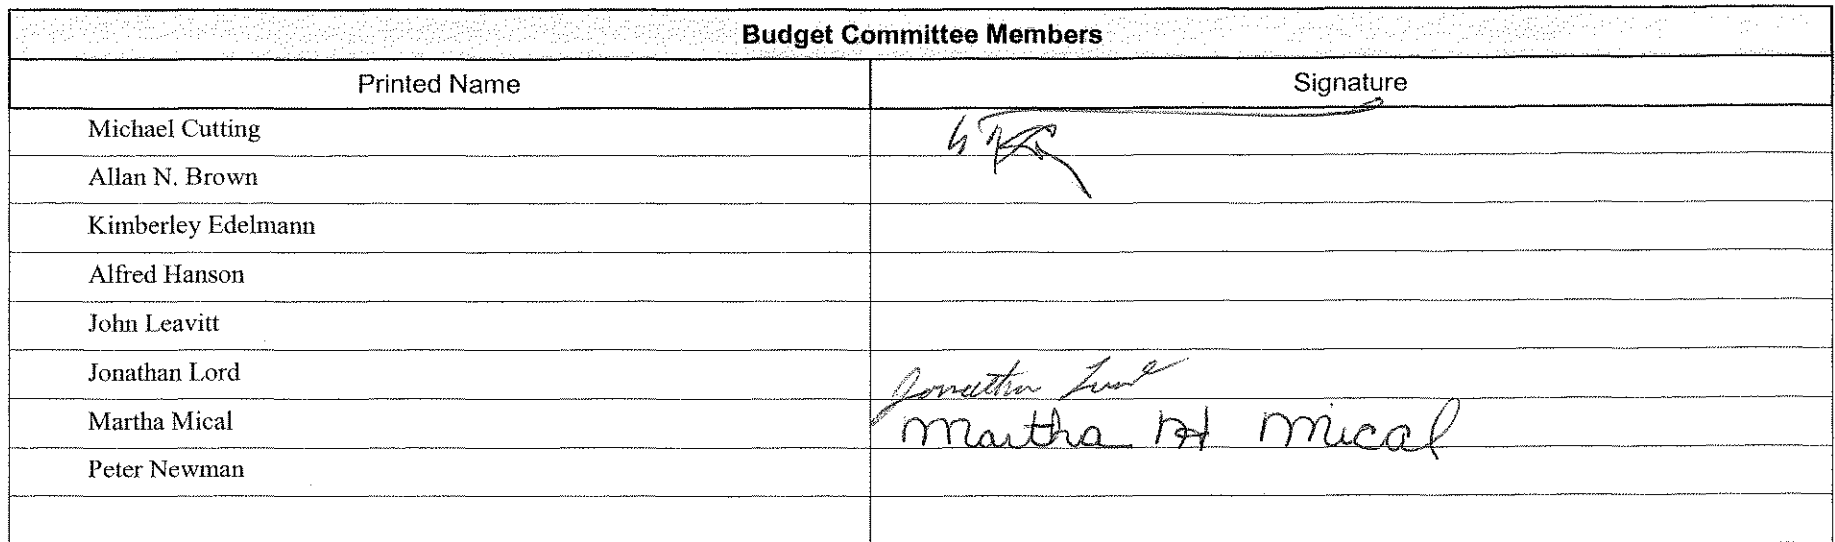 Budget Committee Members
Printed Name Signature
Michael Cutting
Allan N. Brown
Kimberley Edelmann
Alfred Hanson
John Leavitt
Jonathan Lord Jonathan Lord
Martha Mical Martha H Mical
Peter Newman